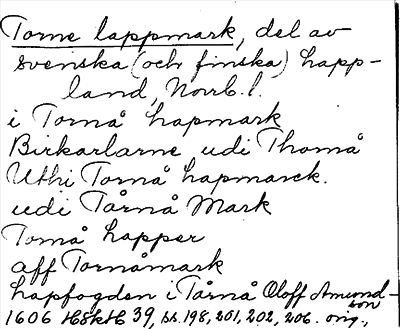 Torne lappmark, del av
svenska (och finska) Lapp-
land, Norrb. l.
i Tornå Lapmark
Birkarlarne udi Thomå
Uthi Tornå Lapmarck.
udi Tårnå Mark
Tornå Lapper
aff Tornåmark
Lapfogden i Tårnå Oloff Amund-
son
1606 HSkH 39, ss. 198, 201, 202, 206. orig.,